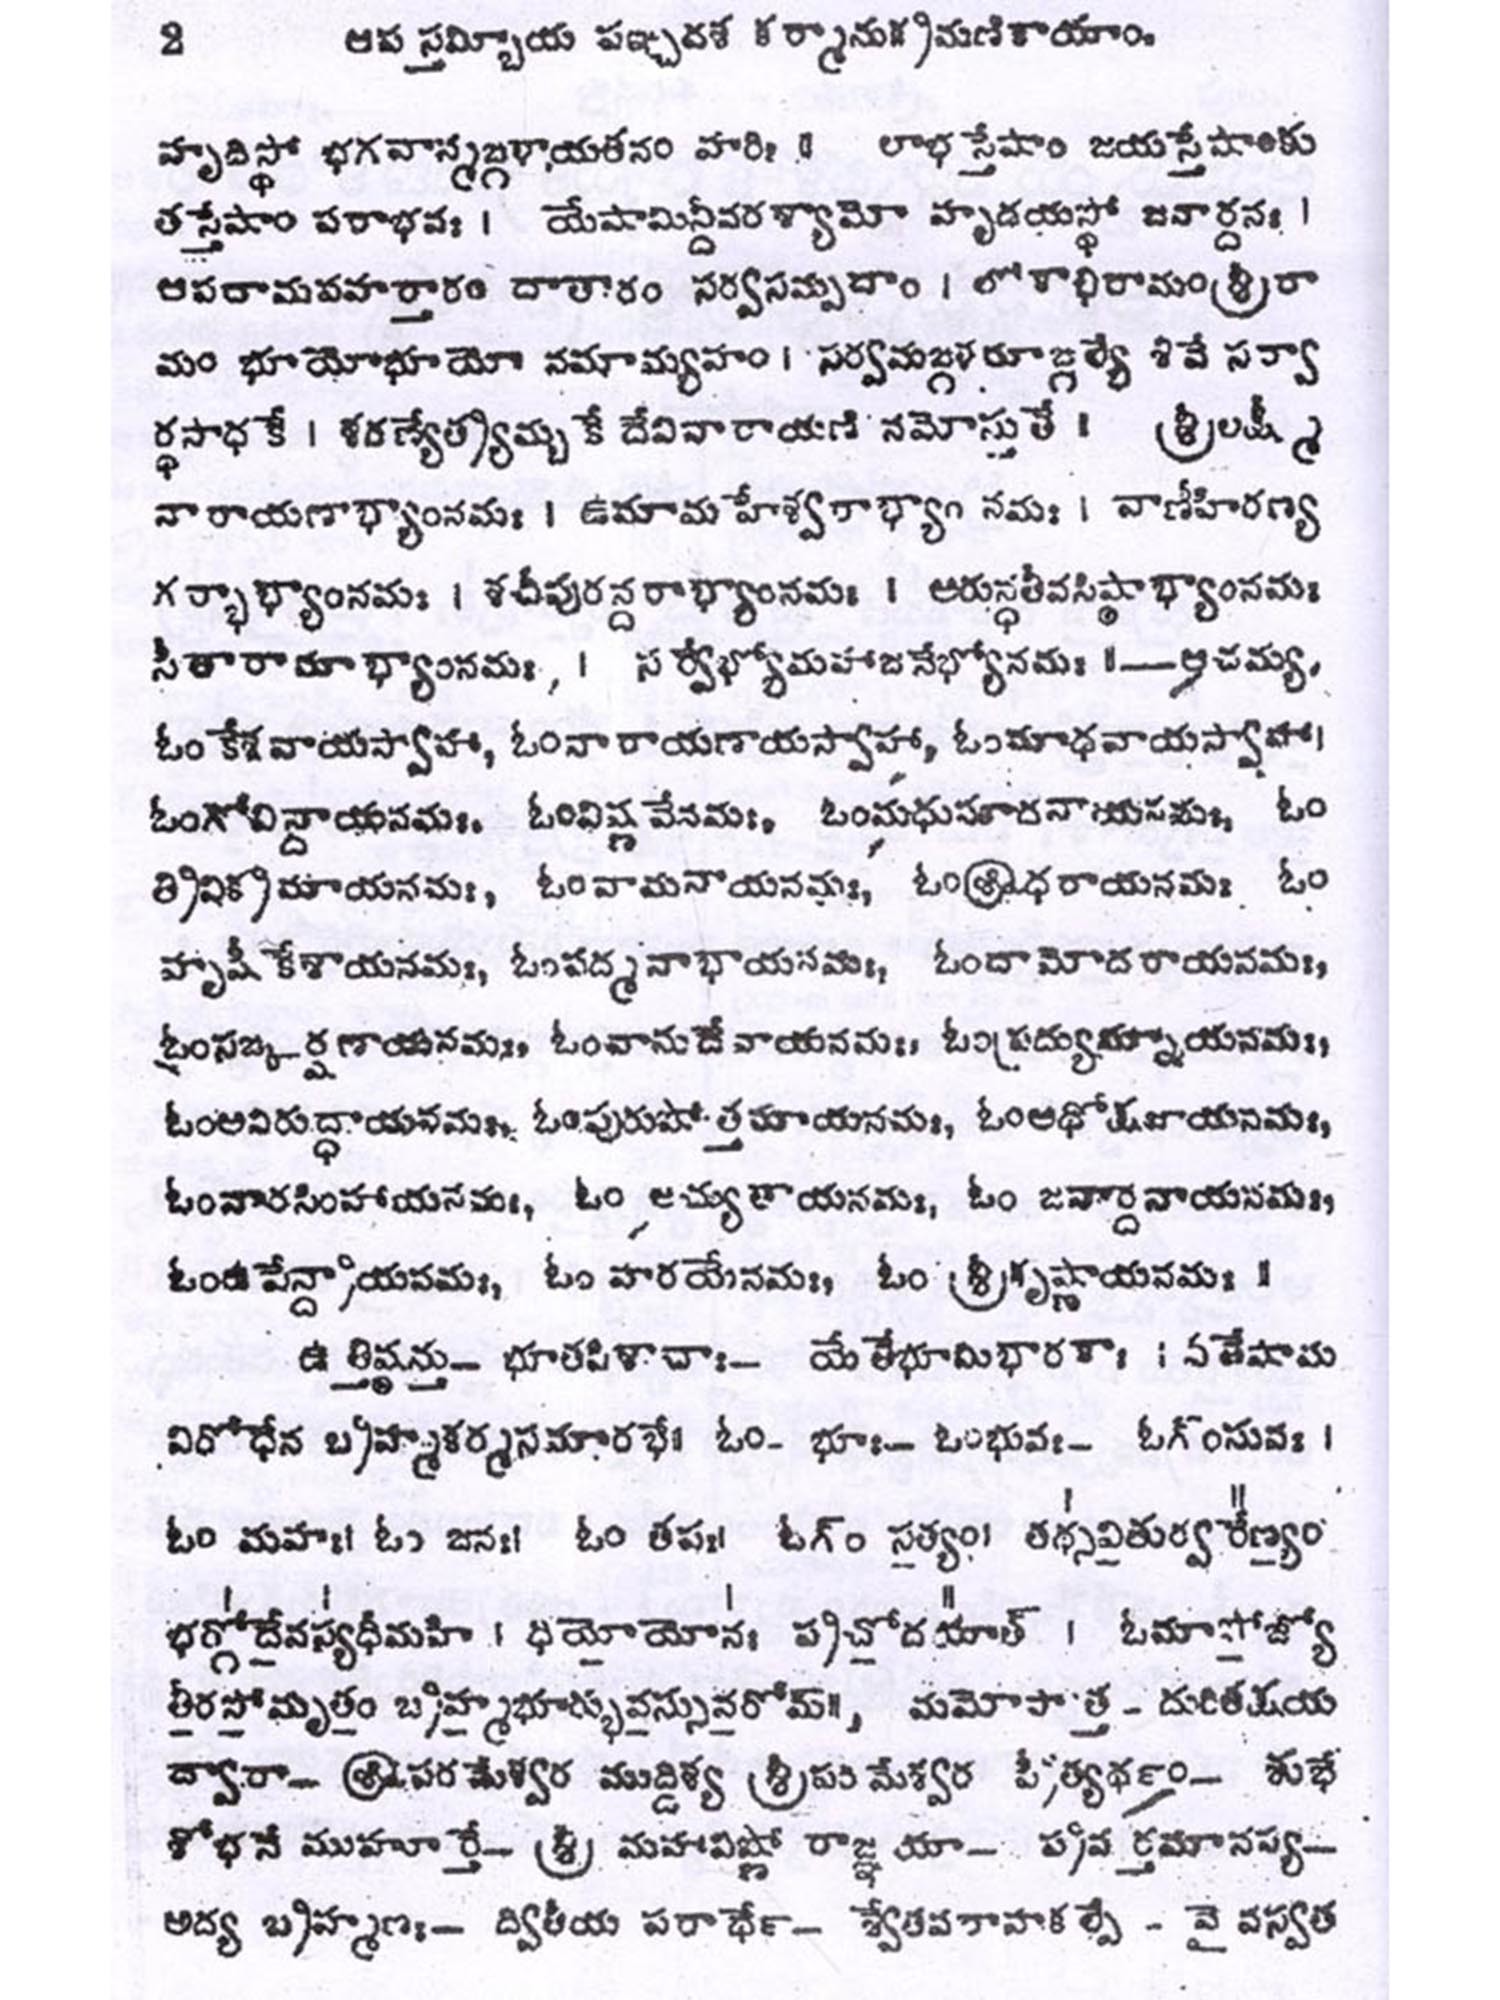 2 ఆపస్తమ్బీయ పఞ్చదశ కర్మానుక్రమణికాయాం.
హృదిస్థో భగవాన్మఙ్గళాయతనం హరిః ॥ లాభస్తేషాం జయస్తేషాంకు
తస్తేషాం పరాభవః । యేషామిన్దీవరశ్యామో హృదయస్థో జనార్దనః ।
ఆపదామపహర్తారం దాతారం సర్వసమ్పదాం । లోకాభిరామంశ్రీరా
మం భూయోభూయో నమామ్యహం । సర్వమఙ్గళమాఙ్గళ్యే శివే సర్వా
ర్థసాధకే । శరణ్యేత్ర్యమ్బకే దేవినారాయణి నమోస్తుతే ॥ శ్రీలక్ష్మీ
నారాయణాభ్యాంనమః । ఉమామహేశ్వరాభ్యాం నమః । వాణీహిరణ్య
గర్భాభ్యాంనమః । శచీపురన్దరాభ్యాంనమః । అరున్ధతీవసిష్ఠాభ్యాంనమః
సీతారామాభ్యాంనమః, । సర్వేభ్యోమహాజనేభ్యోనమః ॥— ఆచమ్య,
ఓంకేశవాయస్వాహా, ఓంనారాయణాయస్వాహా, ఓంమాధవాయస్వాహా।
ఓంగోవిన్దాయనమః, ఓంవిష్ణవేనమః, ఓంమధుసూదనాయనమః, ఓం
త్రివిక్రమాయనమః, ఓంవామనాయనమః, ఓంశ్రీధరాయనమః ఓం
హృషీకేశాయనమః, ఓంపద్మనాభాయనమః, ఓందామోదరాయనమః,
ఓంసఙ్కర్షణాయనమః, ఓంవాసుదేవాయనమః, ఓంప్రద్యుమ్నాయనమః,
ఓంఅనిరుద్ధాయనమః, ఓంపురుషోత్తమాయనమః, ఓంఅథోక్షజాయనమః,
ఓంనారసింహాయనమః, ఓం అచ్యుతాయనమః, ఓం జనార్దనాయనమః,
ఓంఉపేన్ద్రాయనమః, ఓం హరయేనమః, ఓం శ్రీకృష్ణాయనమః ॥
ఉత్తిష్ఠన్తు— భూతపిశాచాః— యేతేభూమిభారకాః । నతేషామ
విరోధేన బ్రహ్మకర్మసమారభే॥ ఓం- భూః— ఓంభువః— ఓగ్ంసువః ।
ఓం మహః। ఓం జనః। ఓం తపః। ఓగ్ం స॒త్యం। తథ్స॑వి॒తుర్వరే᳚ణ్యం॒
భర్గో॑దే॒వస్య॑ధీమహి । ధియో॒యోనః॑ ప్రచో॒దయా᳚త్ । ఓమాపో॒జ్యో
తీ॒రసో॒మృతం॒ బ్రహ్మ॒భూర్భువ॒స్సువ॒రోమ్॥, మమోపాత్త - దురితక్షయ
ద్వారా— శ్రీపరమేశ్వర ముద్దిశ్య శ్రీపరమేశ్వర ప్రీత్యర్థం— శుభే
శోభనే ముహూర్తే— శ్రీ మహావిష్ణో రాజ్ఞయా— ప్రవర్తమానస్య—
అద్య బ్రహ్మణః— ద్వితీయ పరార్థే— శ్వేతవరాహకల్పే - వైవస్వత